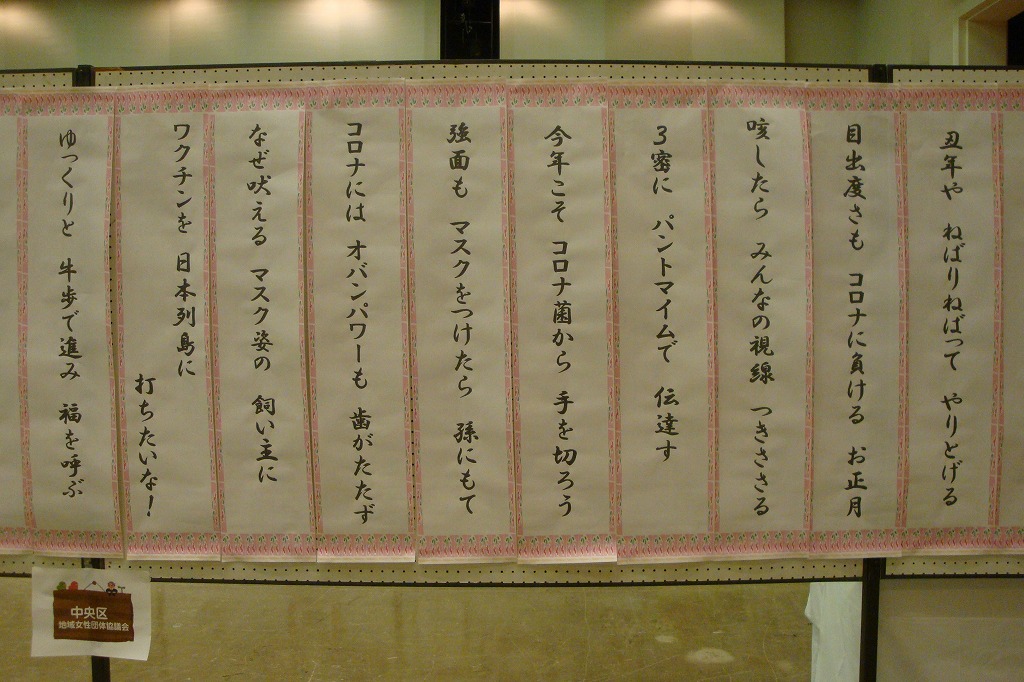 丑年や ねばりねばって やりとげる
目出度さも コロナに負ける お正月
咳したら みんなの視線 つきささる
3密に パントマイムで 伝達す
今年こそ コロナ菌から 手を切ろう
強面も マスクをつけたら 孫にもて
コロナには オバンパワーも 歯がたたず
なぜ吠える マスク姿の 飼い主に
ワクチンを 日本列島に
打ちたいな!
ゆっくりと 牛歩で進み 福を呼ぶ
中央区
地域女性団体協議会